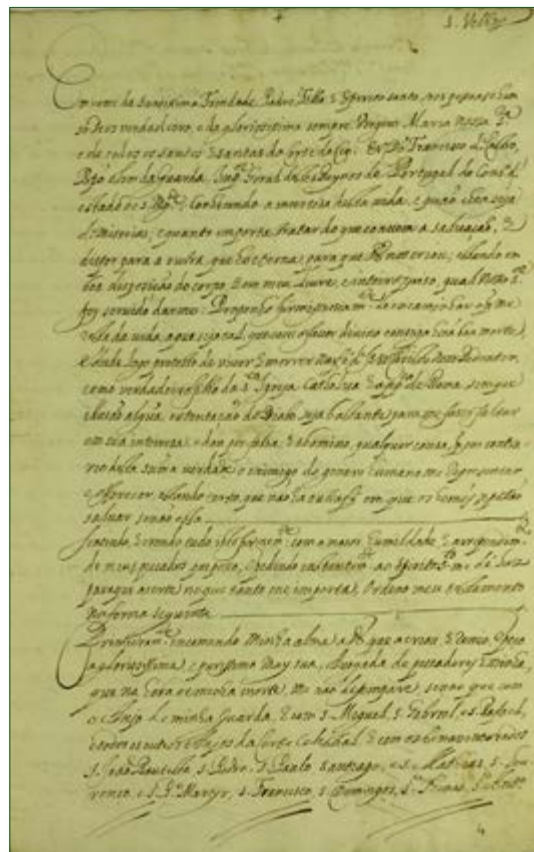 Em nome da Santissima Trindade, Padre, Filho, e Spirito santo, tres pessoas e hum
so Deos verdadeiro, e da gloriosissima sempre Virgem Maria nossa Sra
e de todos os santos e santas da corte do Ceo. Eu Dom Francisco de Castro,
Bpo da guarda, Inqor Geral destes Reynos de Portugal do Consº de
estado de S. Mgde, Considerando a incerteza desta vida, e quão cheia seja
de miserias, e quanto importa tratar do que convem a salvação, e
dispor para a outra, que he eterna, para que Ds nos creou, estando em
boa disposição do corpo, e em meu livre, e inteiro juizo, qual Nosso Sr
foy servido darme: Proponho
da vida, aque seja tal, que com o favor divino consiga hũa boa morte,
e desde logo protesto de viver e morrer na fé de
como verdadeiro filho da Sta Igreja Catholica e de Roma, sem que
illusão algũa, ou tentação do Diabo seja bastante para me fazer faltar
em sua inteireza, e dou por falsa, e abomino, qualquer cousa, que em contra
rio desta summa verdade o enimigo do genero humano me representar
e offerecer, estando certo, que não ha outra fé em que os homẽs se possão
salvar senão essa
e crendo tudo isto com a maior humildade, e
de meus peccados e pedindo ao Spirito Sto me dê luz
para que acerte no que tanto me importa, Ordeno meu testamento
na forma seguinte
Primeiramte encomendo minha alma a Ds que a creou, e remio, e peço
a gloriosissima, e purissima May sua, Avogada de peccadores, e minha,
que na hora de minha morte, me não desempare, senão que com
o Anjo de minha Guarda, e com S. Miguel, S. Gabriel, e S. Rafael,
e todos os outros Anjos da Corte Celestial, e com os
S. João Bautista, S. Pedro, S. Paulo, Santiago, e S. Mathias, S. Lou
renço, e S. Pº Martyr, S. Francisco, S. Domingos, S.
4